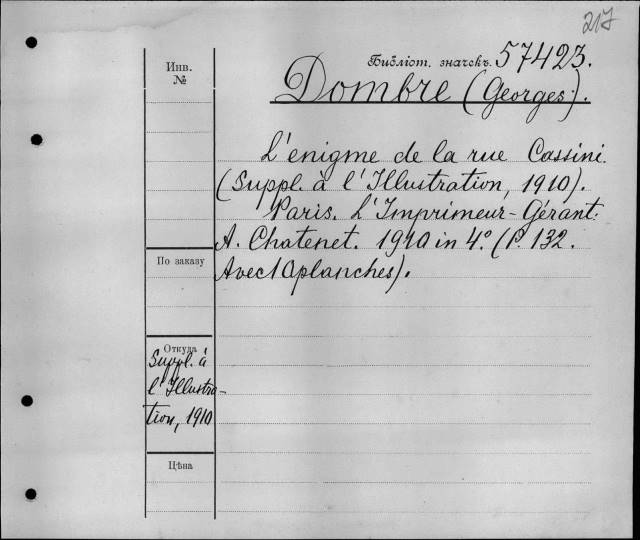 217
Библіот. значекъ 57423.
Инв.
№
Dombre (Georges).
L'énigme de la rue Cassini.
(Suppl. à l'Illustration, 1910).
Paris. L'Imprimeur-Gérant.
A. Chatenet. 1910 in 4º. (P. 132.
Avec 10 planches).
По заказу
Откуда
Suppl. à
l'Illustra-
tion, 1910
Цѣна